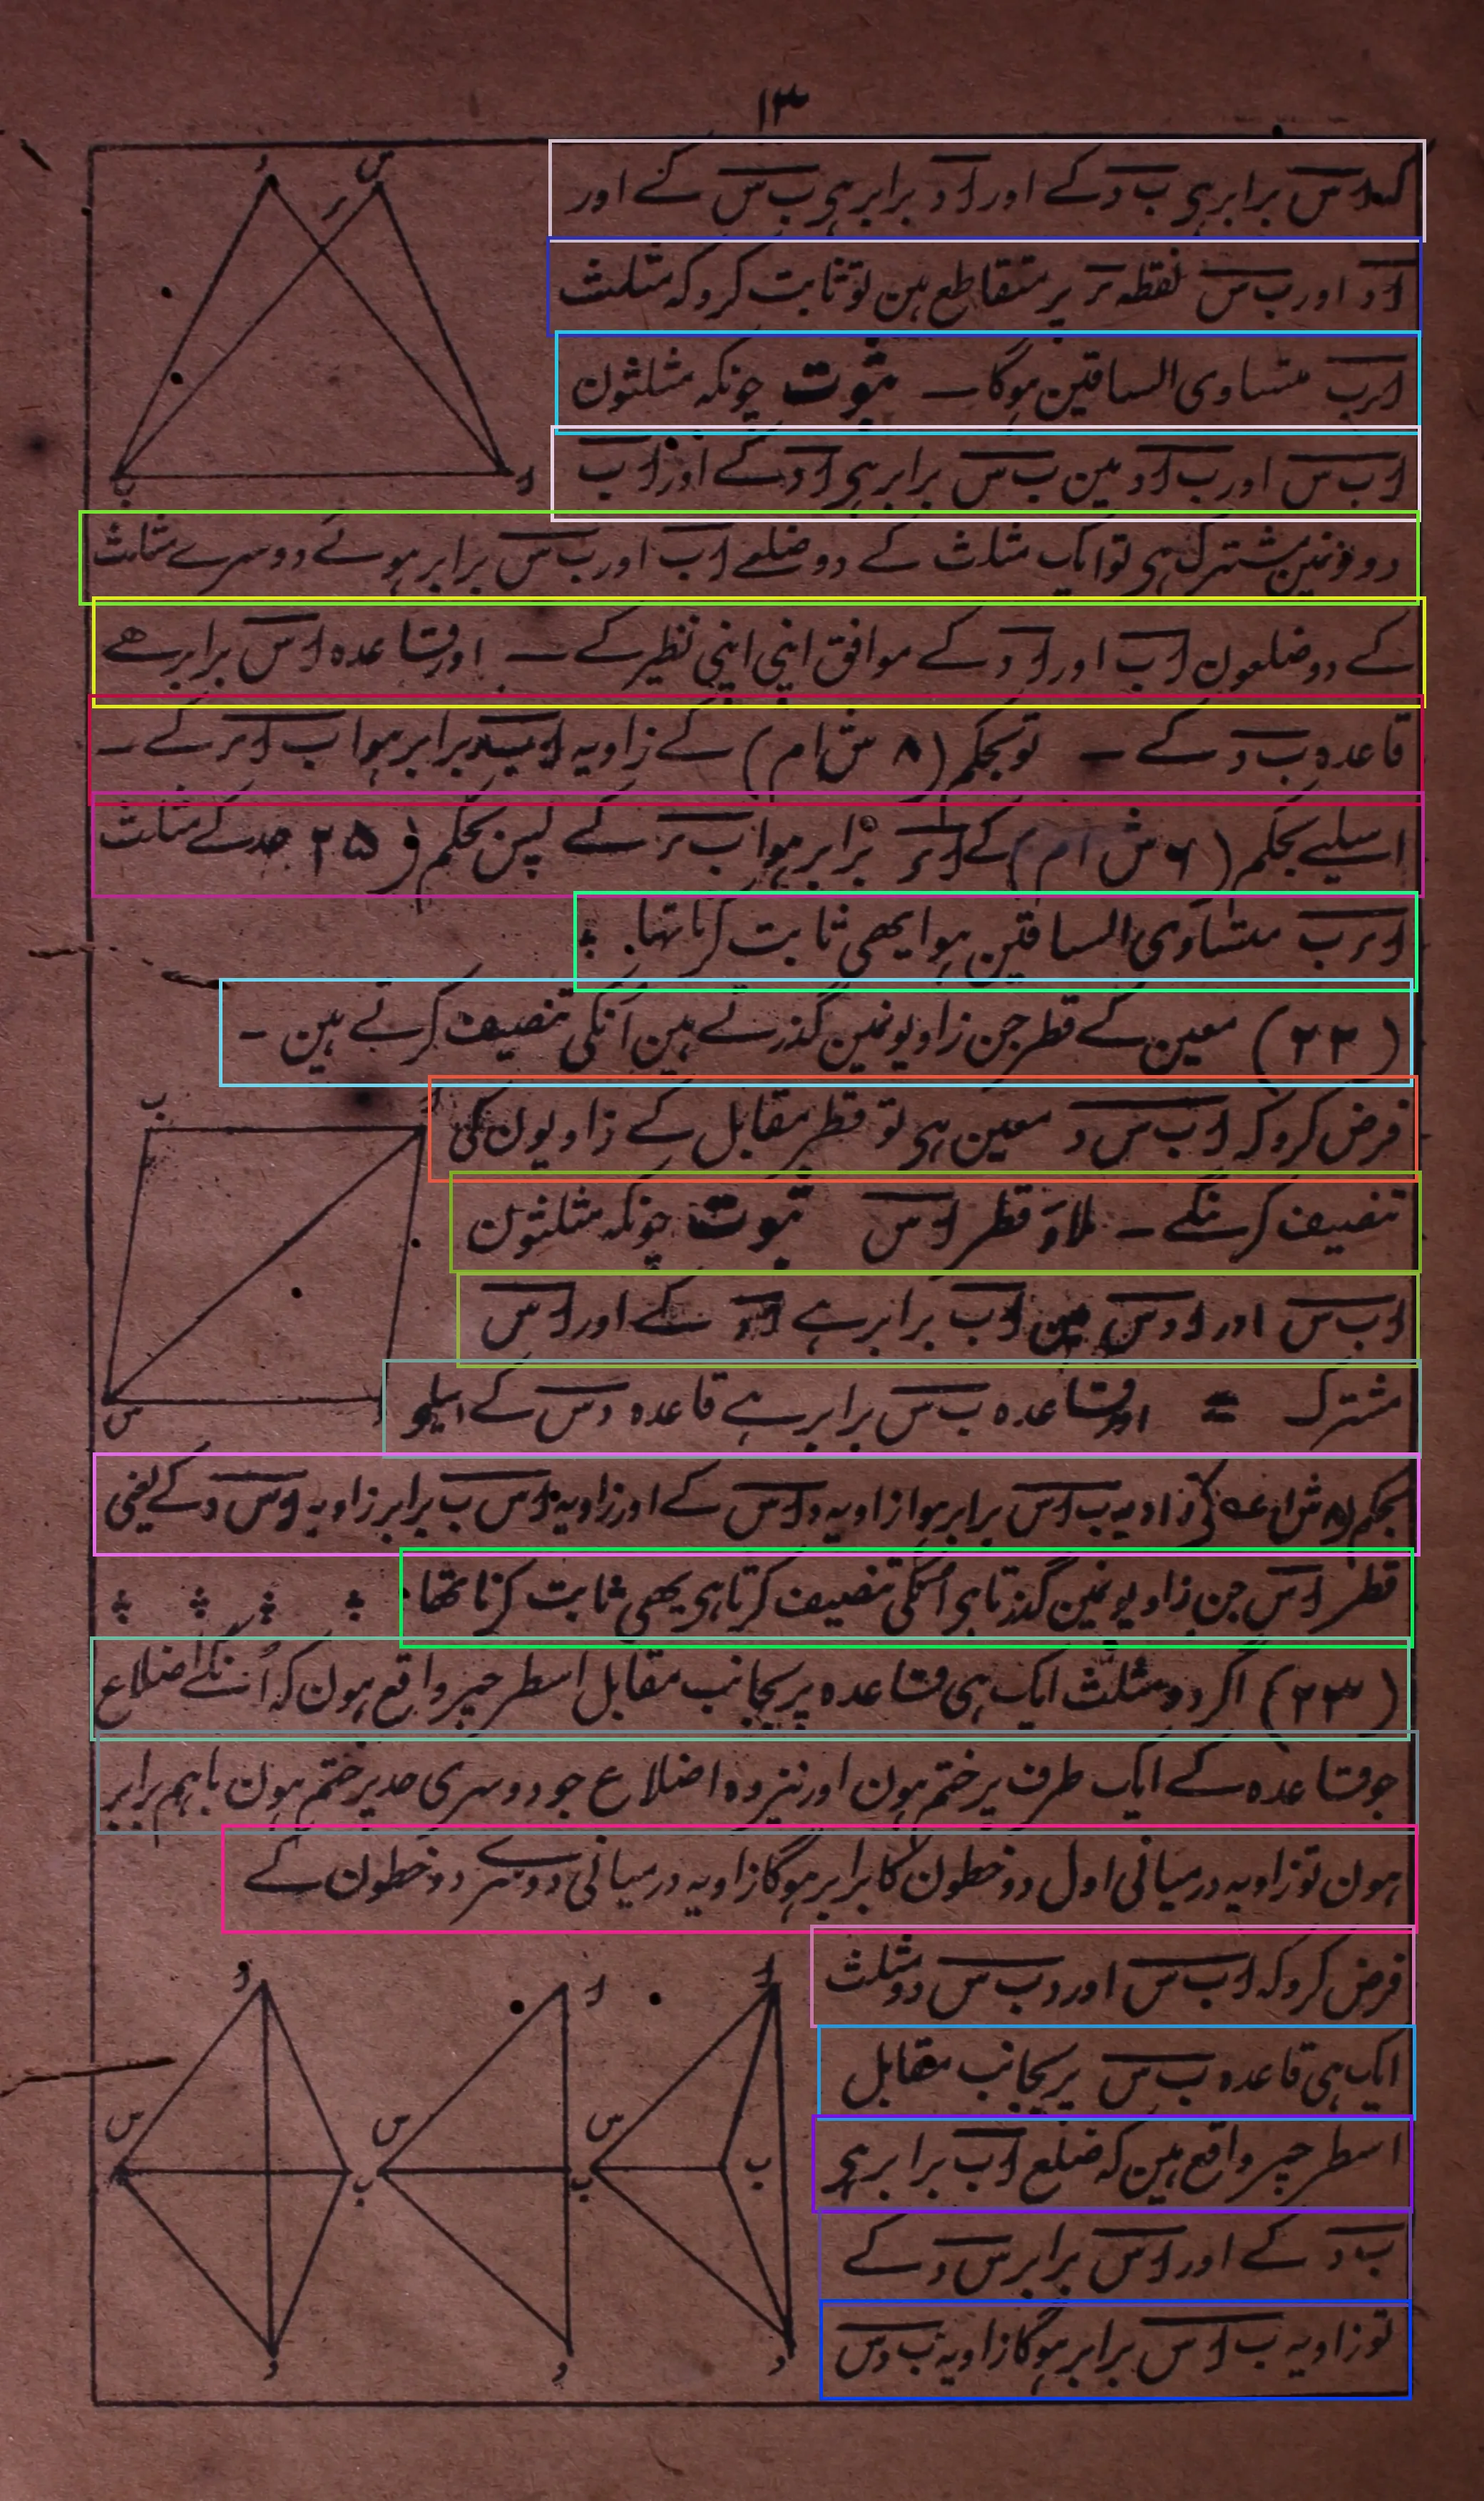 ۱۳
کہ اس برابر ہی ب د کے اور اد برابر ہی ب س کے اور
اد اور ب س نقطہ ر پر متقاطع ہین تو ثابت کرو کہ مثلث
ارب متساوی الساقین ہوگا ۔ ثبوت چونکہ مثلثون
اب س اور ب اد مین ب س برابر ہی اد کے اور اب
دونونمین مشترک ہی تو ایک مثلث کے دو ضلعے اب اور ب س برابر ہوئے دوسرے مثلث
کے دو ضلعون اب اور اد کے موافق اپنی اپنی نظیر کے ۔ اور قاعدہ اس برابر ھے
قاعدہ ب د کے ۔ تو بحکم (۸ ش ام) کے زاویہ برابر ہوا ب ار کے ۔
اسلیے بحکم (۶ ش ام) کے ار برابر ہوا ب ر کے پس بحکم (۲۵ حد کے مثلث
ارب متساوی الساقین ہوا یھی ثابت کرنا تہا ۔
(۲۲) معین کے قطر جن زاویونمین گذرتے ہین انکی تنصیف کرتے ہین ۔
فرض کرو کہ اب س د معین ہی تو قطر مقابل کے زاویون کی
تنصیف کرینگے ۔ ملاؤ قطر اس ثبوت چونکہ مثلثون
اب س اور ادس مین اب برابر ہے اد کے اور اس
مشترک = اور قاعدہ ب س برابر ہے قاعدہ دس کے اسلیے
بحکم (۸ ش ا زاویہ ب اس برابر ہوا زاویہ داس کے اور زاویہ اس ب برابر زاویہ اس د کے یعنی
قطر اس جن زاویونمین گذرتا ہی انکی تنصیف کرتا ہی یھی ثابت کرنا تھا
(۲۳) اگر دو مثلث ایک ہی قاعدہ پر بجانب مقابل اسطرحپر واقع ہون کہ اُنکے اضلاع
جو قاعدہ کے ایک طرف پر ختم ہون اور نیز وہ اضلاع جو دوسری حد پر ختم ہون باہم برابر
ہون تو زاویہ درمیانی اول دو خطون کا برابر ہوگا زاویہ درمیانی دوسرے دو خطون کے
فرض کرو کہ اب س اور دب س دو مثلث
ایک ہی قاعدہ ب س پر بجانب مقابل
اسطرحپر واقع ہین کہ ضلع اب برابر ہی
ب د کے اور اس برابر س د کے
تو زاویہ ب اس برابر ہوگا زاویہ ب دس